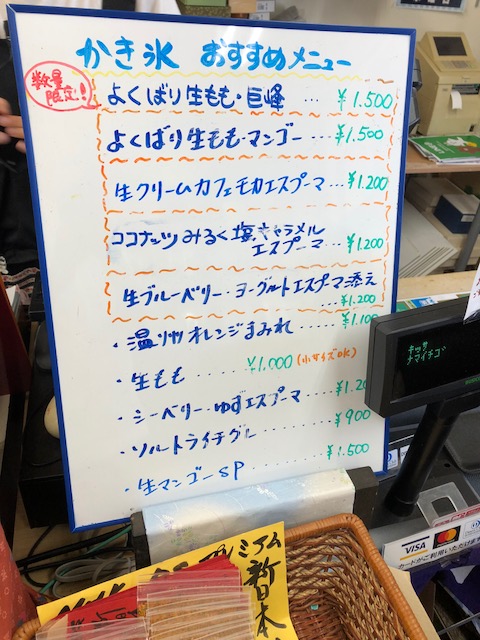 かき氷 おすすめメニュー
数量
限定!!
よくばり生もも・巨峰 … ¥1.500
よくばり生もも・マンゴー … ¥1.500
生クリームカフェモカエスプーマ … ¥1.200
ココナッツみるく塩キャラメル
エスプーマ … ¥1.200
生ブルーベリー・ヨーグルトエスプーマ添え
… ¥1.200
・温州オレンジすみれ ..... ¥1.100
・生もも ..... ¥1.000 (小サイズOK)
・シーベリー・ゆずエスプーマ .... ¥1.20
・ソルトライチグル ........ ¥900
・生マンゴーSP .......... ¥1.500
キッサ
ナマイチゴ
VISA
カードがご利用いただけます
ミアム
新日本